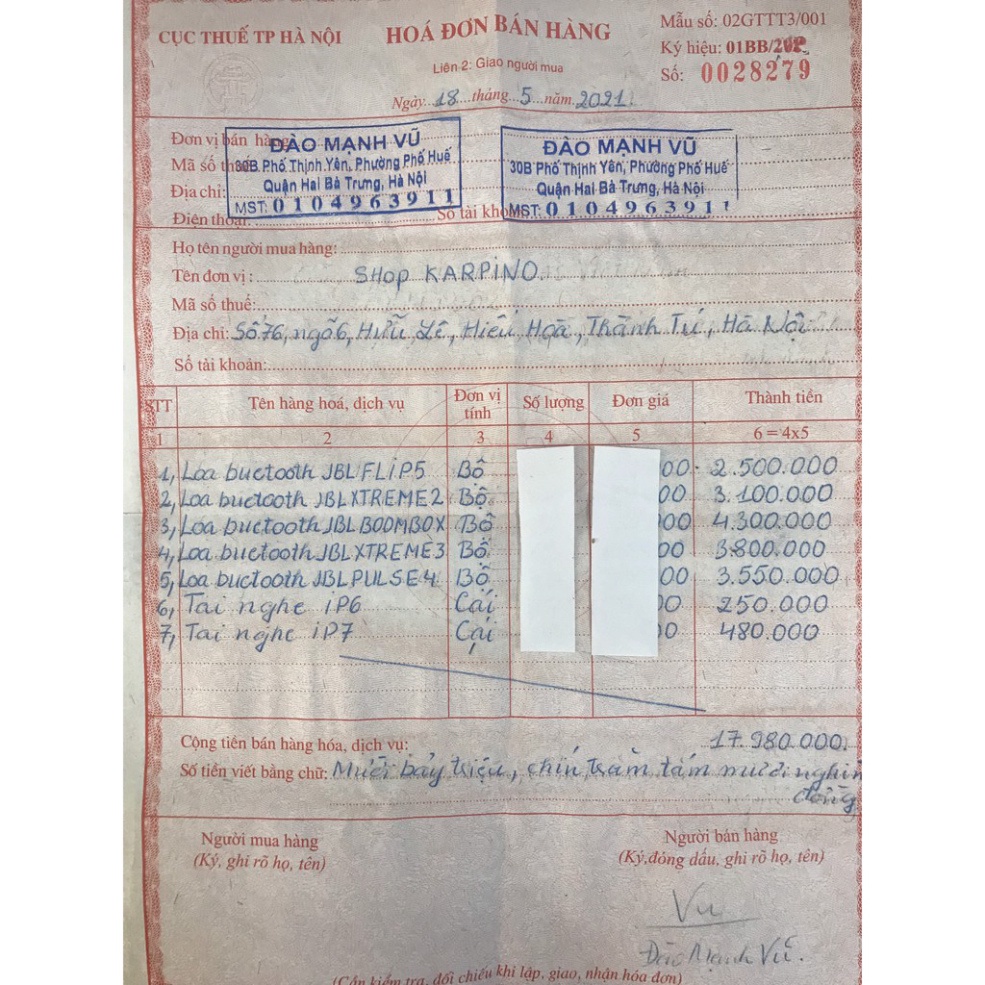 CỤC THUẾ TP HÀ NỘI
HOÁ ĐƠN BÁN HÀNG
Liên 2: Giao người mua
Ngày 18 tháng 5 năm 2021
Mẫu số: 02GTTT3/001
Ký hiệu: 01BB/
Số: 0028279
Đơn vị bán hàng
Mã số thuế
Địa chỉ:
Điện thoại:
Số tài khoản
ĐÀO MẠNH VŨ
30B Phố Thịnh Yên, Phường Phố Huế
Quận Hai Bà Trưng, Hà Nội
MST: 0104963911
ĐÀO MẠNH VŨ
30B Phố Thịnh Yên, Phường Phố Huế
Quận Hai Bà Trưng, Hà Nội
MST: 0104963911
Họ tên người mua hàng:
Tên đơn vị: SHOP KARPINO
Mã số thuế:
Địa chỉ: Số 76, ngõ 6, Hữu Lê, Hiếu Hoà, Thành Tú, Hà Nội
Số tài khoản:
STT Tên hàng hoá, dịch vụ Đơn vị tính Số lượng Đơn giá Thành tiền
1 2 3 4 5 6 = 4x5
1, Loa buctooth JBL FLIP5 Bộ 00 2.500.000
2, Loa buctooth JBL XTREME2 Bộ 00 3.100.000
3, Loa buctooth JBL BOOMBOX Bộ 00 4.300.000
4, Loa buctooth JBL XTREME3 Bộ 00 3.800.000
5, Loa buctooth JBL PULSE4 Bộ 00 3.550.000
6, Tai nghe iP6 Cái 0 250.000
7, Tai nghe iP7 Cái 0 480.000
Cộng tiền bán hàng hóa, dịch vụ: 17.980.000
Số tiền viết bằng chữ: Mười bảy triệu, chín trăm tám mươi nghìn
đồng
Người mua hàng
(Ký, ghi rõ họ, tên)
Người bán hàng
(Ký, đóng dấu, ghi rõ họ, tên)
Vu
Đào Mạnh Vũ.
(Cần kiểm tra, đối chiếu khi lập, giao, nhận hóa đơn)